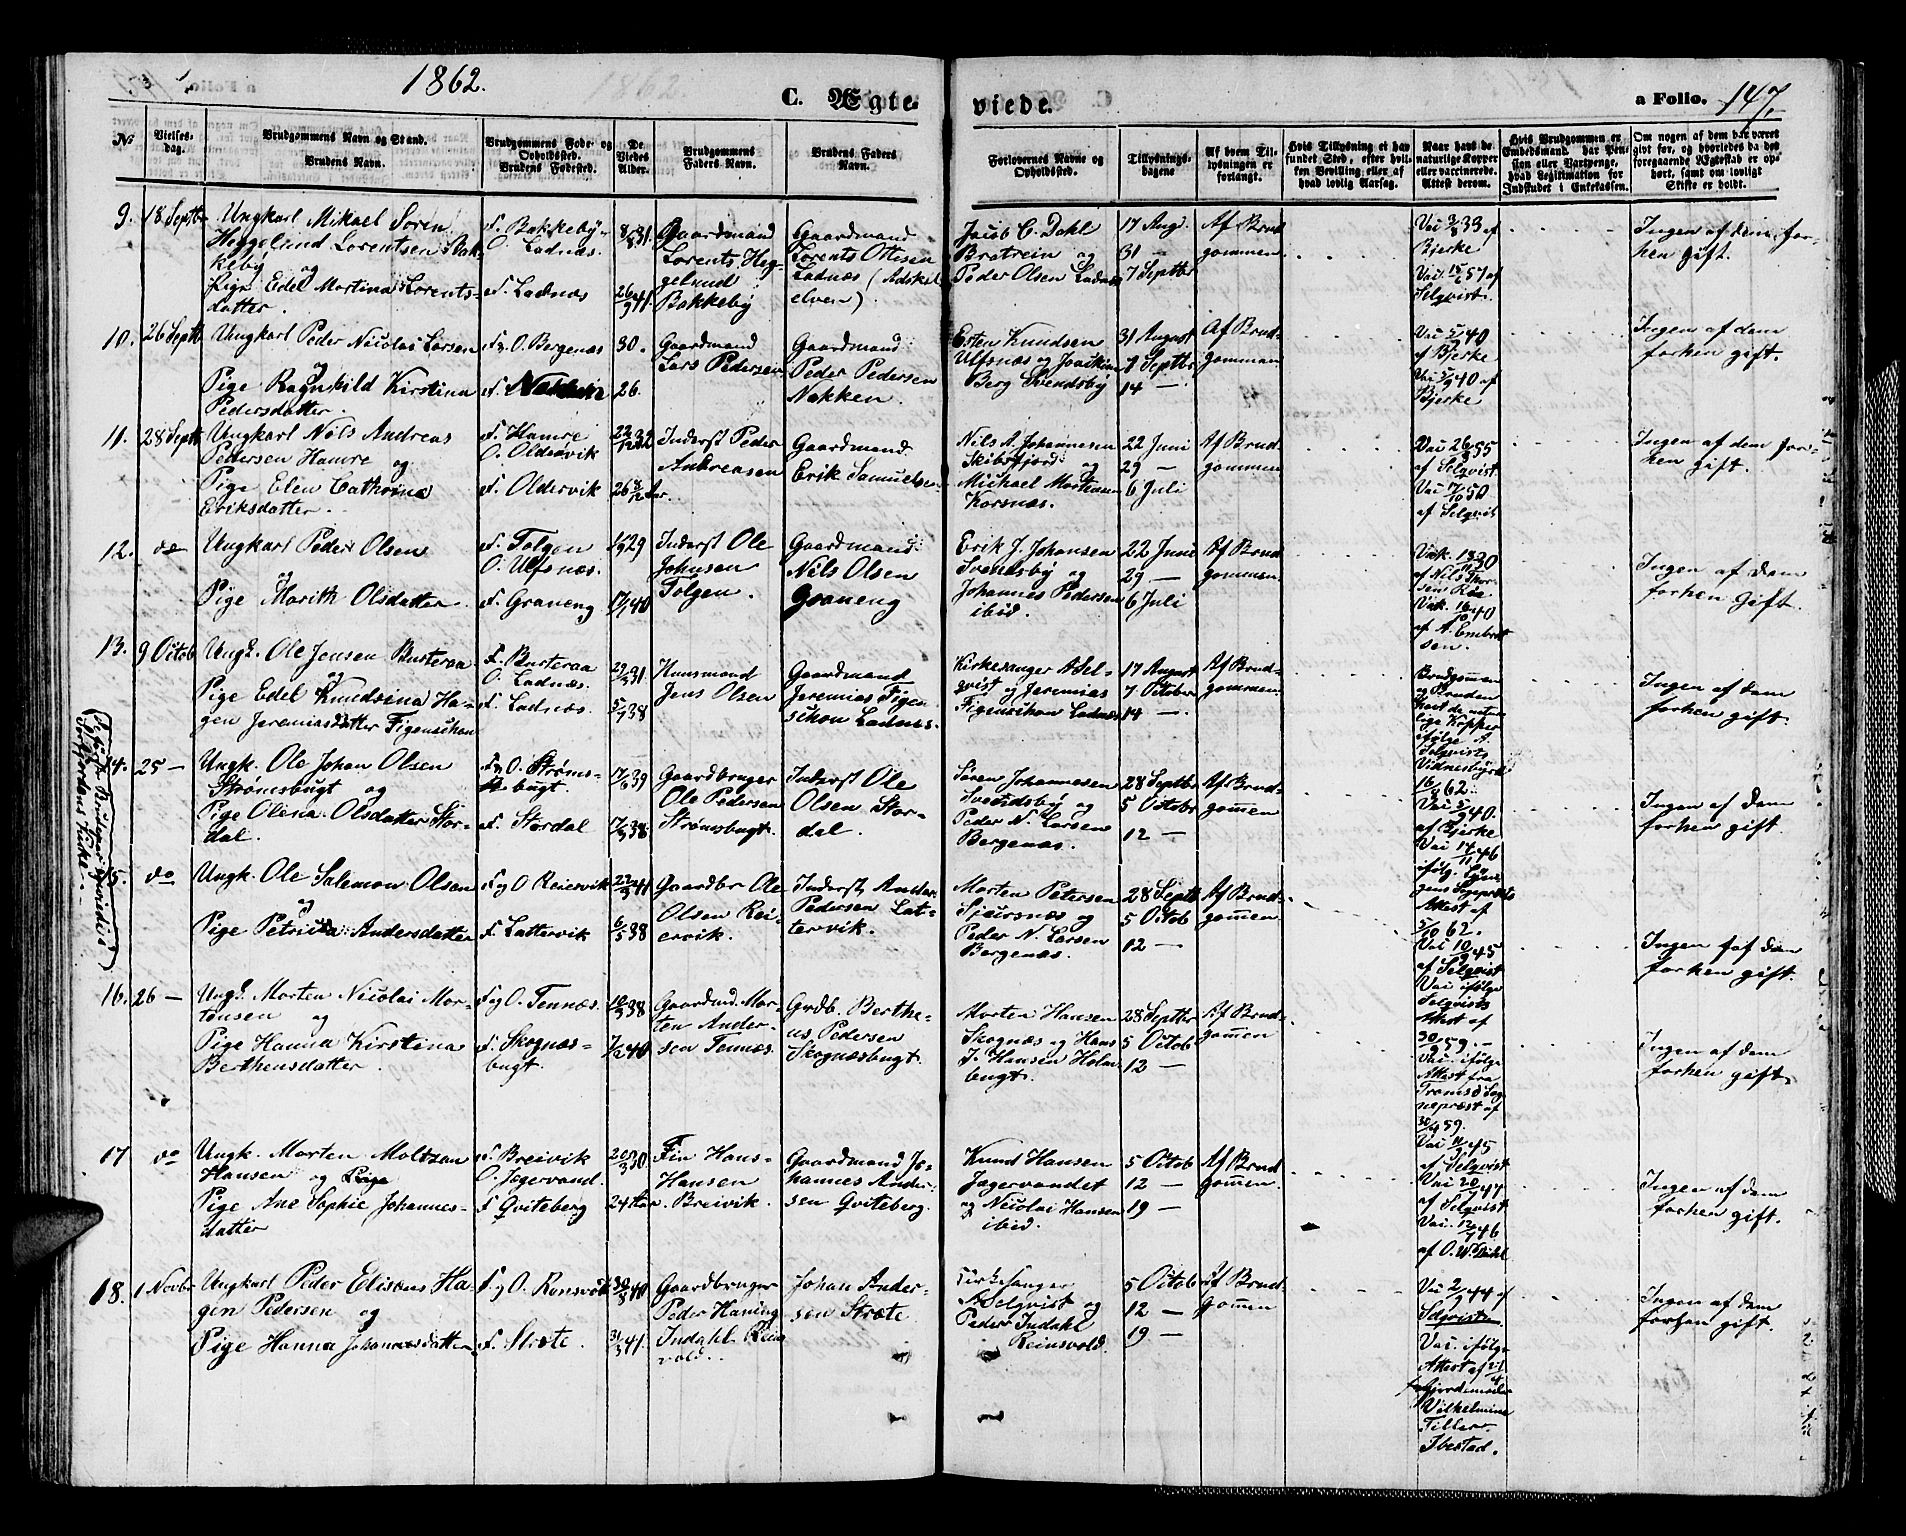 1862.
C. Ægteviede.
a Folio. 147.
No
Vielses-
dag.
Brudgommens Navn og Stand.
Brudens Navn.
Brudgommens Føde- og
Opholdssted.
Brudens Fødested.
De
Viedes
Alder.
Brudgommens
Faders Navn.
Brudens Faders
Navn.
Forlovernes Navne og
Opholdssted.
Tillysnings-
dagene
Af hvem Til-
lysningen er
forlangt.
Hvis Tillysning ei har
fundet Sted, efter hvil-
ken Bevilling eller af
hvad lovlig Aarsag.
Naar havt de
naturlige Kopper
eller vaccinerede.
Attest derom.
Hvis Brudgommen er
Embedsmand, har Pen-
sion eller Vartpenge,
hvad Legitimation for
Indskudet i Enkekassen.
Om nogen af dem har været
gift før, og hvorledes da det
foregaaende Ægteskab er op-
hørt, samt om lovligt
Skifte er holdt.
9. 18 Septbr
Ungkarl Mikael Søren
Heggelund Lorentsen Bak-
keby og
Pige Edel Martina Lorents-
datter.
F. Bakkeby
O. Ladnæs.
F. Ladnæs
8/8 31
26/9 41.
Gaardmand
Lorents Heg-
gelund
Bakkeby
Gaardmand
Lorents Ottesen
Ladnæs (Adskil
elven).
Jacob C. Dahl
Bratrein og
Peder Olsen Ladnæs
17 Aug
31 —
7 Septbr
Af Brud-
gommen
Vai 3/8 33 af
Bjerke
Vai. 15/6 57 af
Selqvist.
Ingen af dem for-
hen gift.
10. 26 Septb
Ungkarl Peder Nicolai Larsen
og
Pige Ragnhild Kirstina
Pedersdatter.
F. og O. Bergenæs
F. Nakken
30.
26.
Gaardmand
Lars Pedersen
Gaardmand
Peder Pedersen
Nakken.
Esten Knudsen
Ulfsnæs og Joakim
Berg Svendsby
31 August
7 Septbr
14 —
Af Brud-
gommen
Vai 5/9 40
af Bjerke
Vai 5/9 40 af
Bjerke
Ingen af dem
forhen gift.
11. 28 Septb
Ungkarl Nils Andreas
Pedersen Hamre og
Pige Elen Cathrina
Eriksdatter.
F. Hamre
O. Oldervik
F. Oldervik
22/12 32
26 8/12 Aar.
Inderst Peder
Andreasen
Gaardmand
Erik Samuelsen
Nils A. Johannesen
Skibsfjord og
Michael Mortensen
Kornæs.
22 Juni
29 —
6 Juli
Af Brud-
gommen
Vai 26/8 55
af Selqvist.
Vai 17/10 50
af Selqvist
Ingen af dem for-
hen gift.
12. do
Ungkarl Peder Olsen
og
Pige Marith Olsdatter.
F. Tolgen
O. Ulfsnæs.
F. Graneng
29
17/1 40
Inderst Ole
Johnsen
Tolgen.
Gaardmand
Nils Olsen
Graneng
Erik J. Johansen
Svendsby og
Johannes Pedersen
ibid.
22 Juni
29. —
6 Juli
Af Brud-
gommen.
Vak. 18/11 30
af Nils Thor-
sen Røe
Vak. 16/10 40
af A. Embret
sen.
Ingen af dem
forhen gift.
13. 9 Octob
Ungk. Ole Jensen Busteraa
og
Pige Edel Knudsina Ha-
gen Jeremiasdatter Figenschau
F. Busteraa
O. Ladnæs.
F. Ladnæs.
29/3 31
5/7 38
Huusmand
Jens Olsen
Gaardmand
Jeremias Figen-
schou Ladnæs.
Kirkesanger A Sel-
qvist og Jeremias
Figenschou Ladnæs
17 August
7 October
14 —
Af Brud-
gommen.
Brudgommen
og Bruden
havt de natur-
lige Kopper
ifølge A
Selqvists
Vidnesbyrd
16/8 62.
Ingen af dem
forhen gift.
14. 25 —
Ungk. Ole Johan Olsen
Strømsbugt og
Pige Olina Olsdatter Stor-
dal.
F. og O. Strøms-
bugt.
F. Stordal
17/6 39
17/5 38
Gaardbruger
Ole Pedersen
Strømsbugt.
Inderst Ole
Olsen Stor-
dal.
Søren Johannesen
Svendsby og
Peder N. Larsen
Bergenæs.
28 Septbr
5 Octobr
12 —
Af Brud-
gommen.
Vai 5/9 40.
af Bjerke
Vai 14/11 46
ifølg. Lyn-
gens Sognepræsts
Attest af
5/10 62.
Ingen af dem
forhen gift.
15. do
Ungk. Ole Salemon Olsen
og
Pige Petrikka Andersdatter
F. og O. Reiervik
F. Lattervik
22/3 41
6/5 38
Gaardbr Ole
Olsen Rei-
ervik.
Inderst Anders
Pedersen Lat-
tervik.
Morten Petersen
Sjursnæs og
Peder N. Larsen
Bergenæs.
28 Septb
5 Octob
12 —
Af Brud-
gommen.
Vai 10/9 45
af Selqvist
Vai ifølge
Selqvists
Attest af
30/9 59. —
Ingen af dem
forhen gift.
16. 26 —
Ungk. Morten Nicolai Mor-
tensen og
Pige Hanna Kirstina
Berthensdatter.
F. og O. Tennæs.
F. Skognæs-
bugt.
10/3 38
7/12 40
Gaardmd. Mor-
ten Ander-
sen Tennæs.
Grdb. Berthe-
us Pedersen
Skognæsbugt.
Morten Hansen
Skognæs og Hans
J. Hansen Holm-
bugt.
28 Septbr
5 Octob
12 —
Af Brud-
gommen
Vai. ifølge
Attest fra
Tromsø Sog-
nepræst af
30/9 59.
Vai 11/9 45
af Selqvist
Ingen af dem
forhen gift.
17 do
Ungk. Morten Moltzau
Hansen og Pige
Pige Ane Sophie Johannes-
datter
F. Breivik
O. Jøgervand.
F Qviteberg
20/3 30
24 Aar
Fin Hans
Hansen
Breivik.
Gaardmand Jo-
hannes Ander-
sen Qviteberg.
Knud Hansen
Jægervandet
og Nicolai Hansen
ibid.
5 Octob
12 —
19 —
Af Brud-
gommen.
Vai 20/7 47
af Selqvist
Vai. 12/7 46
af O. W. Lund
Ingen af dem
forhen gift.
18. 1 Novbr
Ungkarl Peder Elisæus Ha-
gen Pedersen og
Pige Hanna Johannesdatter
F. og O. Rønsvold
F. Stræte.
30/8 40
31/3 41.
Gaardbruger
Peder Haning
Indahl Reins
vold.
Johan Ander-
sen Stræte.
Kirkesanger
A Selqvist og
Peder Indahl
Reinsvold.
5 Octob
12 —
19 —
Af Brud-
gommen
Vai 2/9 44 af
Selqvist
Vai. ifølge
Attest af 21/4
fra Gjordemoder
Vilhelmine
Tiller
Ibestad.
Ingen af dem
forhen gift.